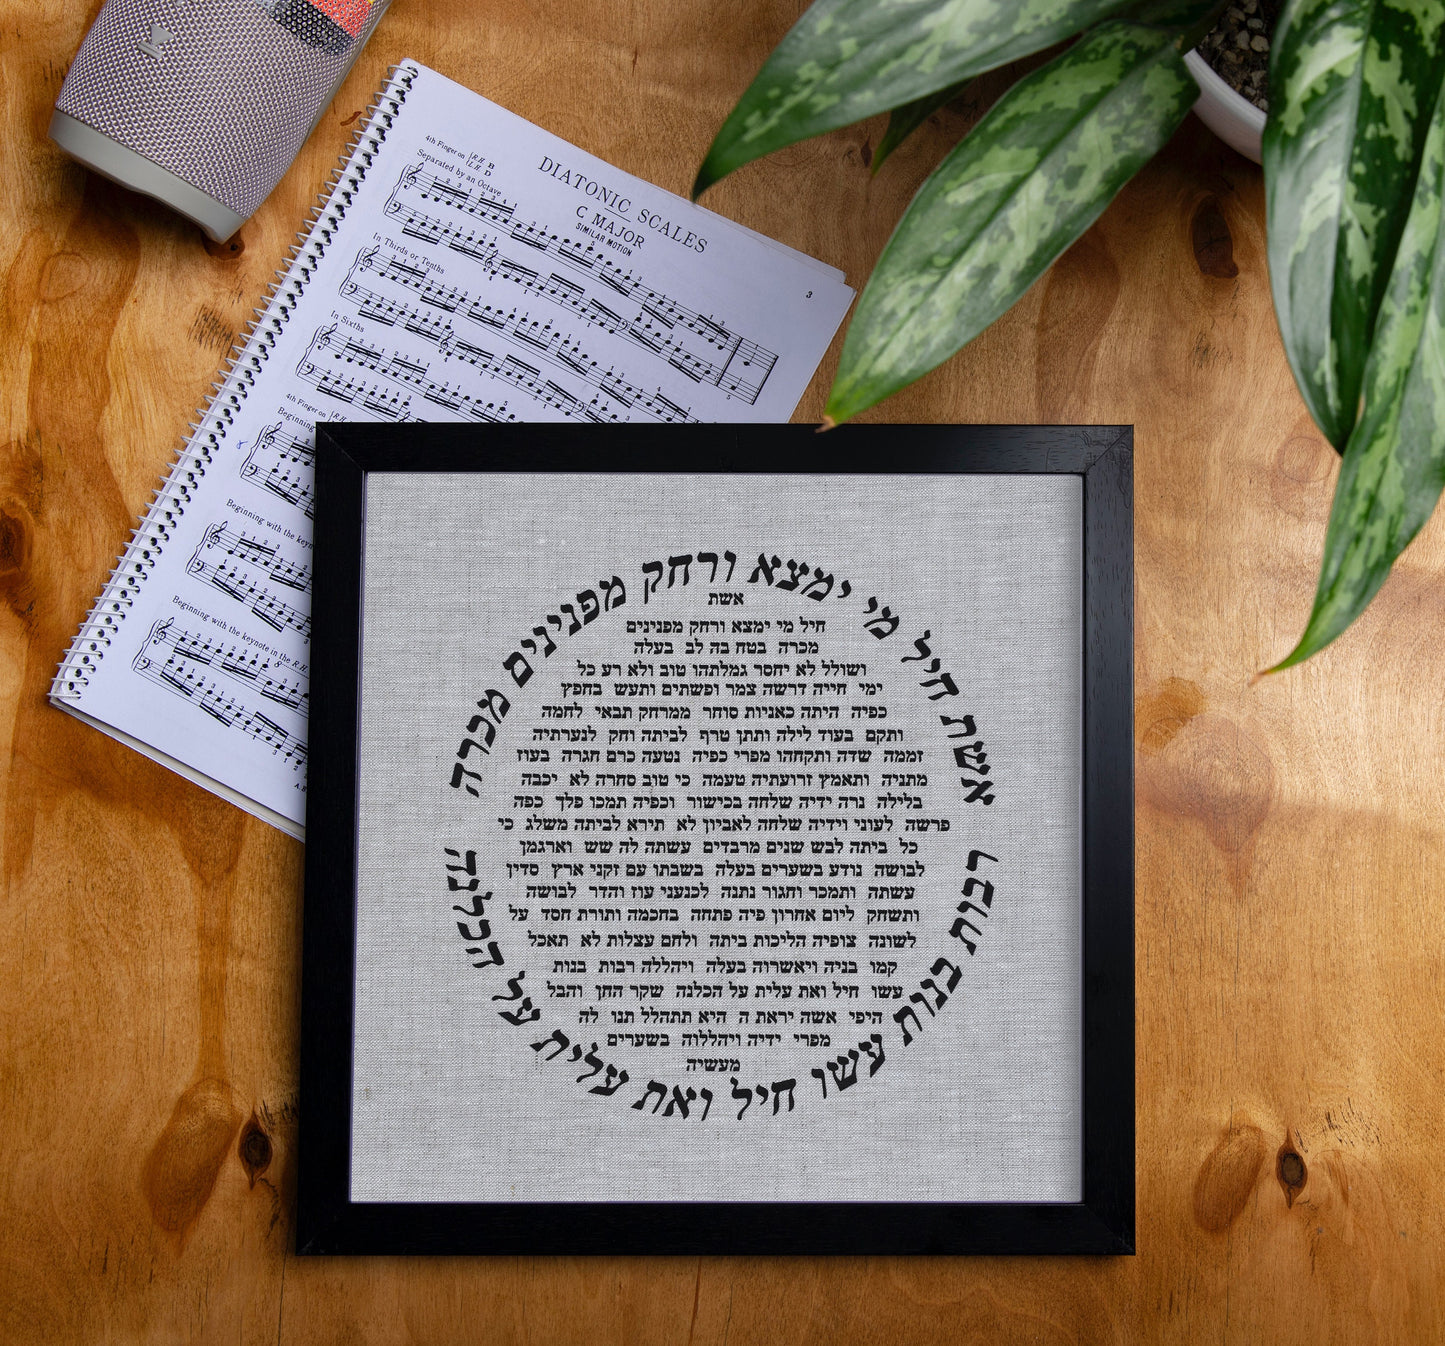 DIATONIC SCALES
C MAJOR
SIMILAR MOTION
3
4th Finger on R.H. B
L.H. D
Separated by an Octave
In Thirds or Tenths
In Sixths
4th Finger on R.H.
Beginning
Beginning with the keyn
Beginning with the keynote in the R.H.
אשת חיל מי ימצא ורחק מפנינים מכרה
אשת
חיל מי ימצא ורחק מפנינים
מכרה בטח בה לב בעלה
ושולל לא יחסר גמלתהו טוב ולא רע כל
ימי חייה דרשה צמר ופשתים ותעש בחפץ
כפיה היתה כאניות סוחר ממרחק תבאי לחמה
ותקם בעוד לילה ותתן טרף לביתה וחק לנערתיה
זממה שדה ותקחהו מפרי כפיה נטעה כרם חגרה בעוז
מתניה ותאמץ זרועתיה טעמה כי טוב סחרה לא יכבה
בלילה נרה ידיה שלחה בכישור וכפיה תמכו פלך כפה
פרשה לעוני וידיה שלחה לאביון לא תירא לביתה משלג כי
כל ביתה לבש שנים מרבדים עשתה לה שש וארגמן
לבושה נודע בשערים בעלה בשבתו עם זקני ארץ סדין
עשתה ותמכר וחגור נתנה לכנעני עוז והדר לבושה
ותשחק ליום אחרון פיה פתחה בחכמה ותורת חסד על
לשונה צופיה הליכות ביתה ולחם עצלות לא תאכל
קמו בניה ויאשרוה בעלה ויהללה רבות בנות
עשו חיל ואת עלית על הכלנה שקר החן והבל
היפי אשה יראת ה היא תתהלל תנו לה
מפרי ידיה ויהללוה בשערים
מעשיה
רבות בנות עשו חיל ואת עלית על הכלנה